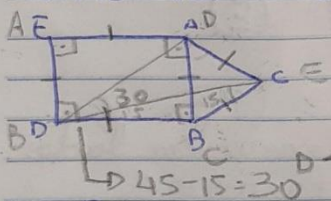 A E A D
30 15 C E
B D B
C D
45-15=30